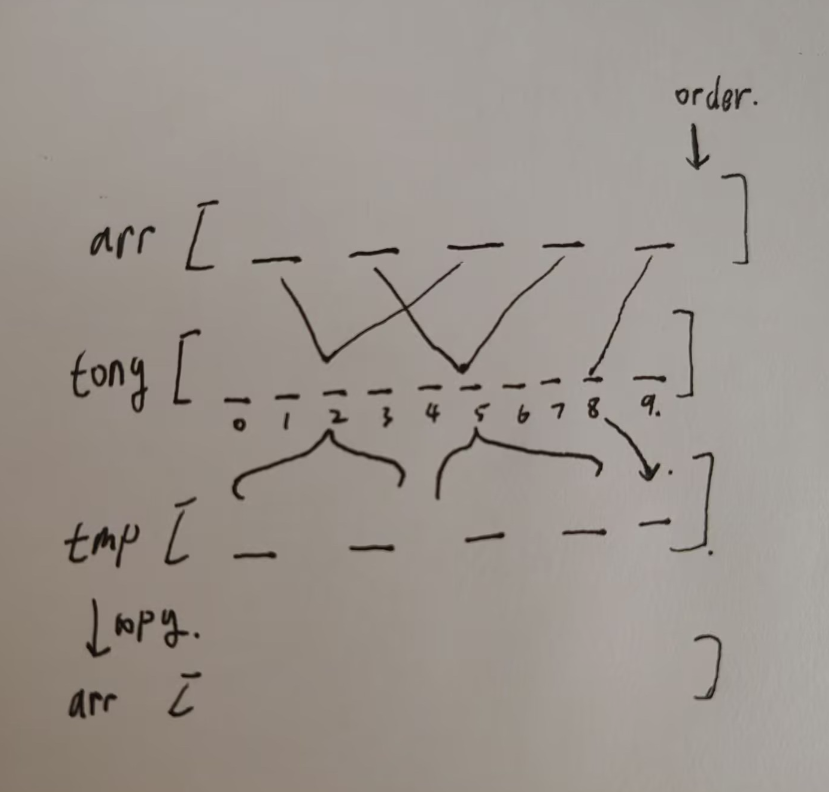 order.
arr [ ]
tong [ ]
0 1 2 3 4 5 6 7 8 9.
tmp [ ].
copy.
arr [ ]